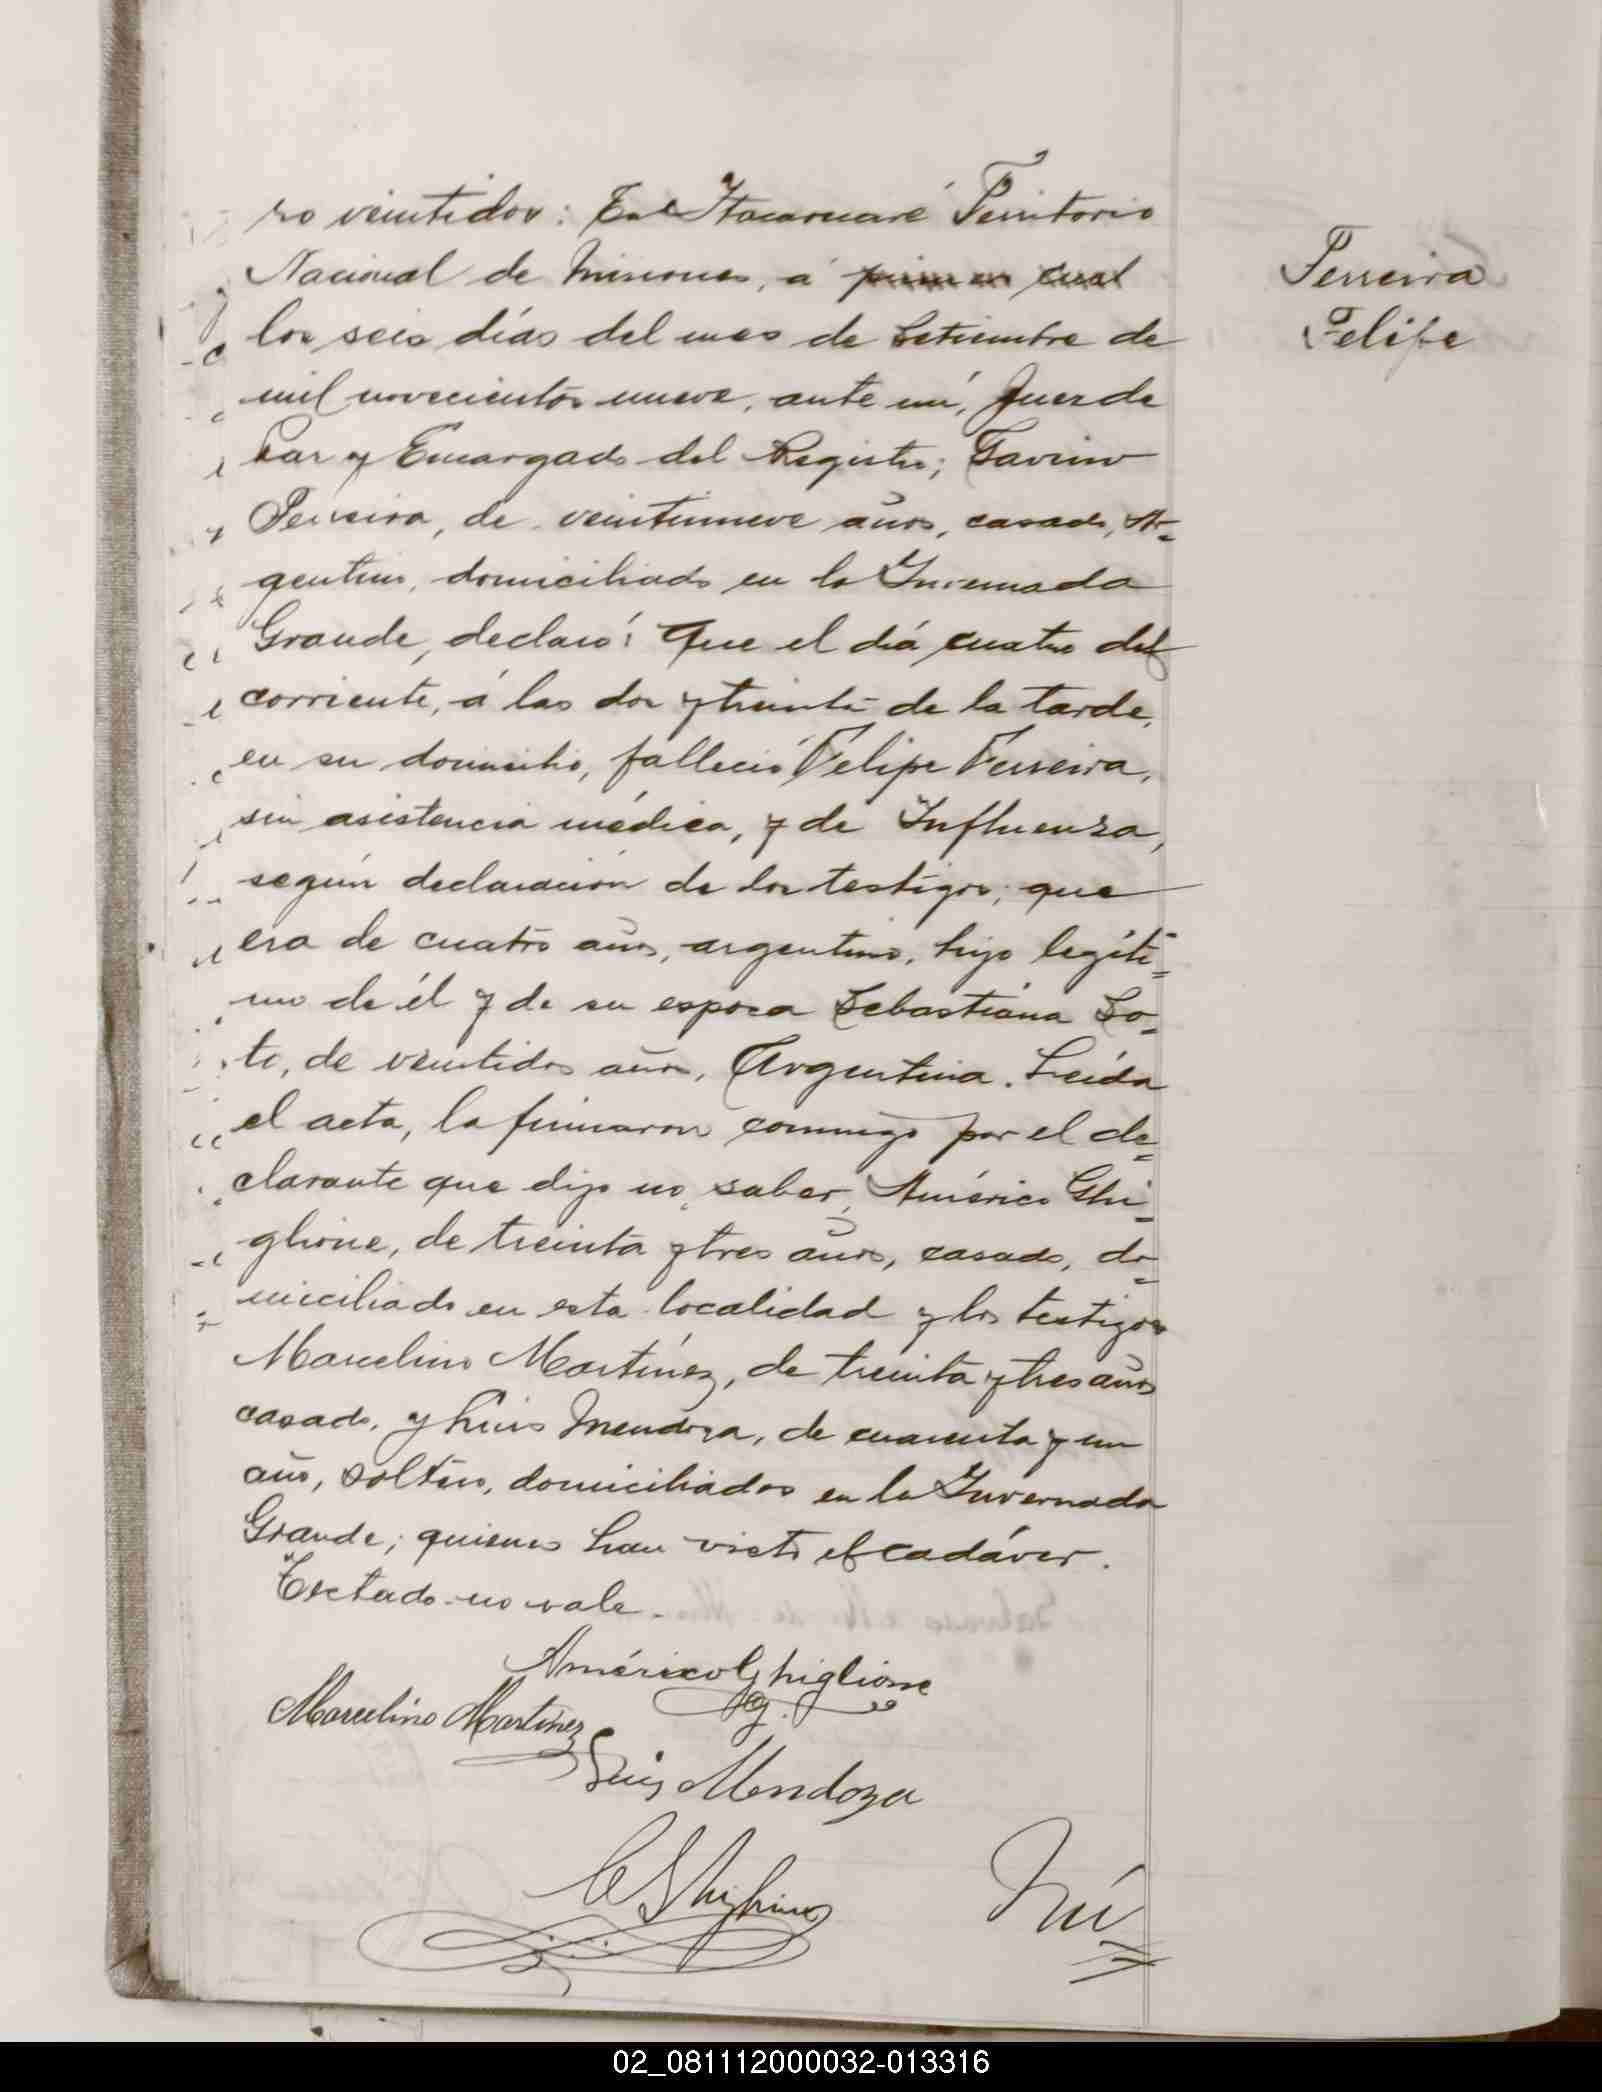 ro veintidos: En Itacaruaré Territorio
Nacional de Misiones, á
los seis días del mes de Setiembre de
mil novecientos nueve, ante mí, Juez de
Paz y Encargado del Registro; Gavino
Ferreira, de veintinueve años, casado, Ar=
gentino, domiciliado en la Invernada
Grande, declaró: Que el día cuatro del
corriente, á las dos y treinta de la tarde,
en su domicilio, falleció Felipe Ferreira,
sin asistencia médica, y de Influenza,
según declaración de los testigos; que
era de cuatro años, argentino, hijo legíti=
mo de él y de su esposa Sebastiana So=
to, de veintidos años, Argentina. Leída
el acta, la firmaron conmigo por el de=
clarante que dijo no saber, Américo Ghi=
glione, de treinta y tres años, casado, do=
miciliado en esta localidad y los testigos
Marcelino Martínez, de treinta y tres años
casado, y Luis Mendoza, de cuarenta y un
año, soltero, domiciliados en la Invernada
Grande; quienes han visto el cadáver.
Testado no vale.
Américo Ghiglione
Marcelino Martinez
Luis Mendoza
Ferreira
Felipe
02_081112000032-013316